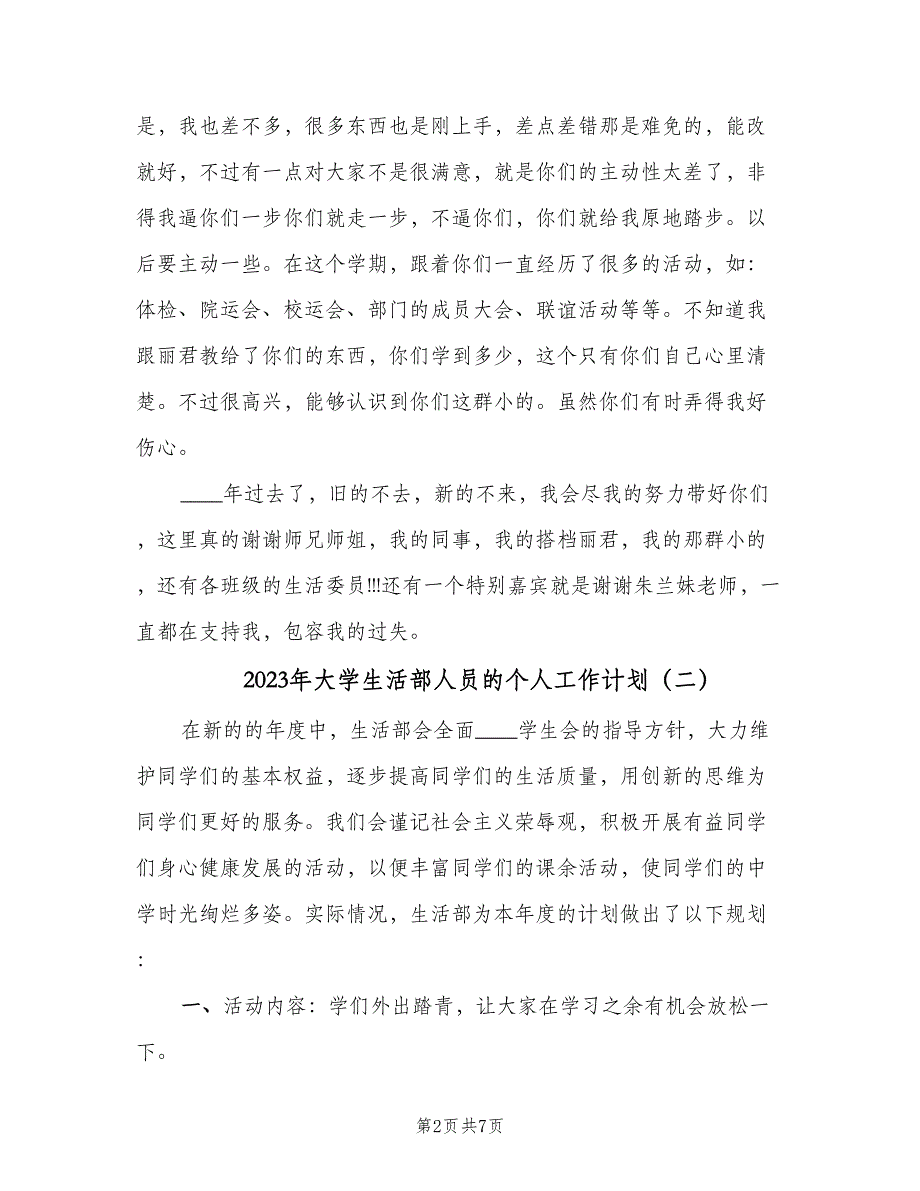 是，我也差不多，很多东西也是刚上手，差点差错那是难免的，能改
就好，不过有一点对大家不是很满意，就是你们的主动性太差了，非
得我逼你们一步你们就走一步，不逼你们，你们就给我原地踏步。以
后要主动一些。在这个学期，跟着你们一直经历了很多的活动，如：
体检、院运会、校运会、部门的成员大会、联谊活动等等。不知道我
跟丽君教给了你们的东西，你们学到多少，这个只有你们自己心里清
楚。不过很高兴，能够认识到你们这群小的。虽然你们有时弄得我好
伤心。
____年过去了，旧的不去，新的不来，我会尽我的努力带好你们
，这里真的谢谢师兄师姐，我的同事，我的搭档丽君，我的那群小的
，还有各班级的生活委员!!!还有一个特别嘉宾就是谢谢朱兰妹老师，一
直都在支持我，包容我的过失。
2023年大学生活部人员的个人工作计划（二）
在新的的年度中，生活部会全面____学生会的指导方针，大力维
护同学们的基本权益，逐步提高同学们的生活质量，用创新的思维为
同学们更好的服务。我们会谨记社会主义荣辱观，积极开展有益同学
们身心健康发展的活动，以便丰富同学们的课余活动，使同学们的中
学时光绚烂多姿。实际情况，生活部为本年度的计划做出了以下规划
：
一、活动内容：学们外出踏青，让大家在学习之余有机会放松一
下。
第2页共7页